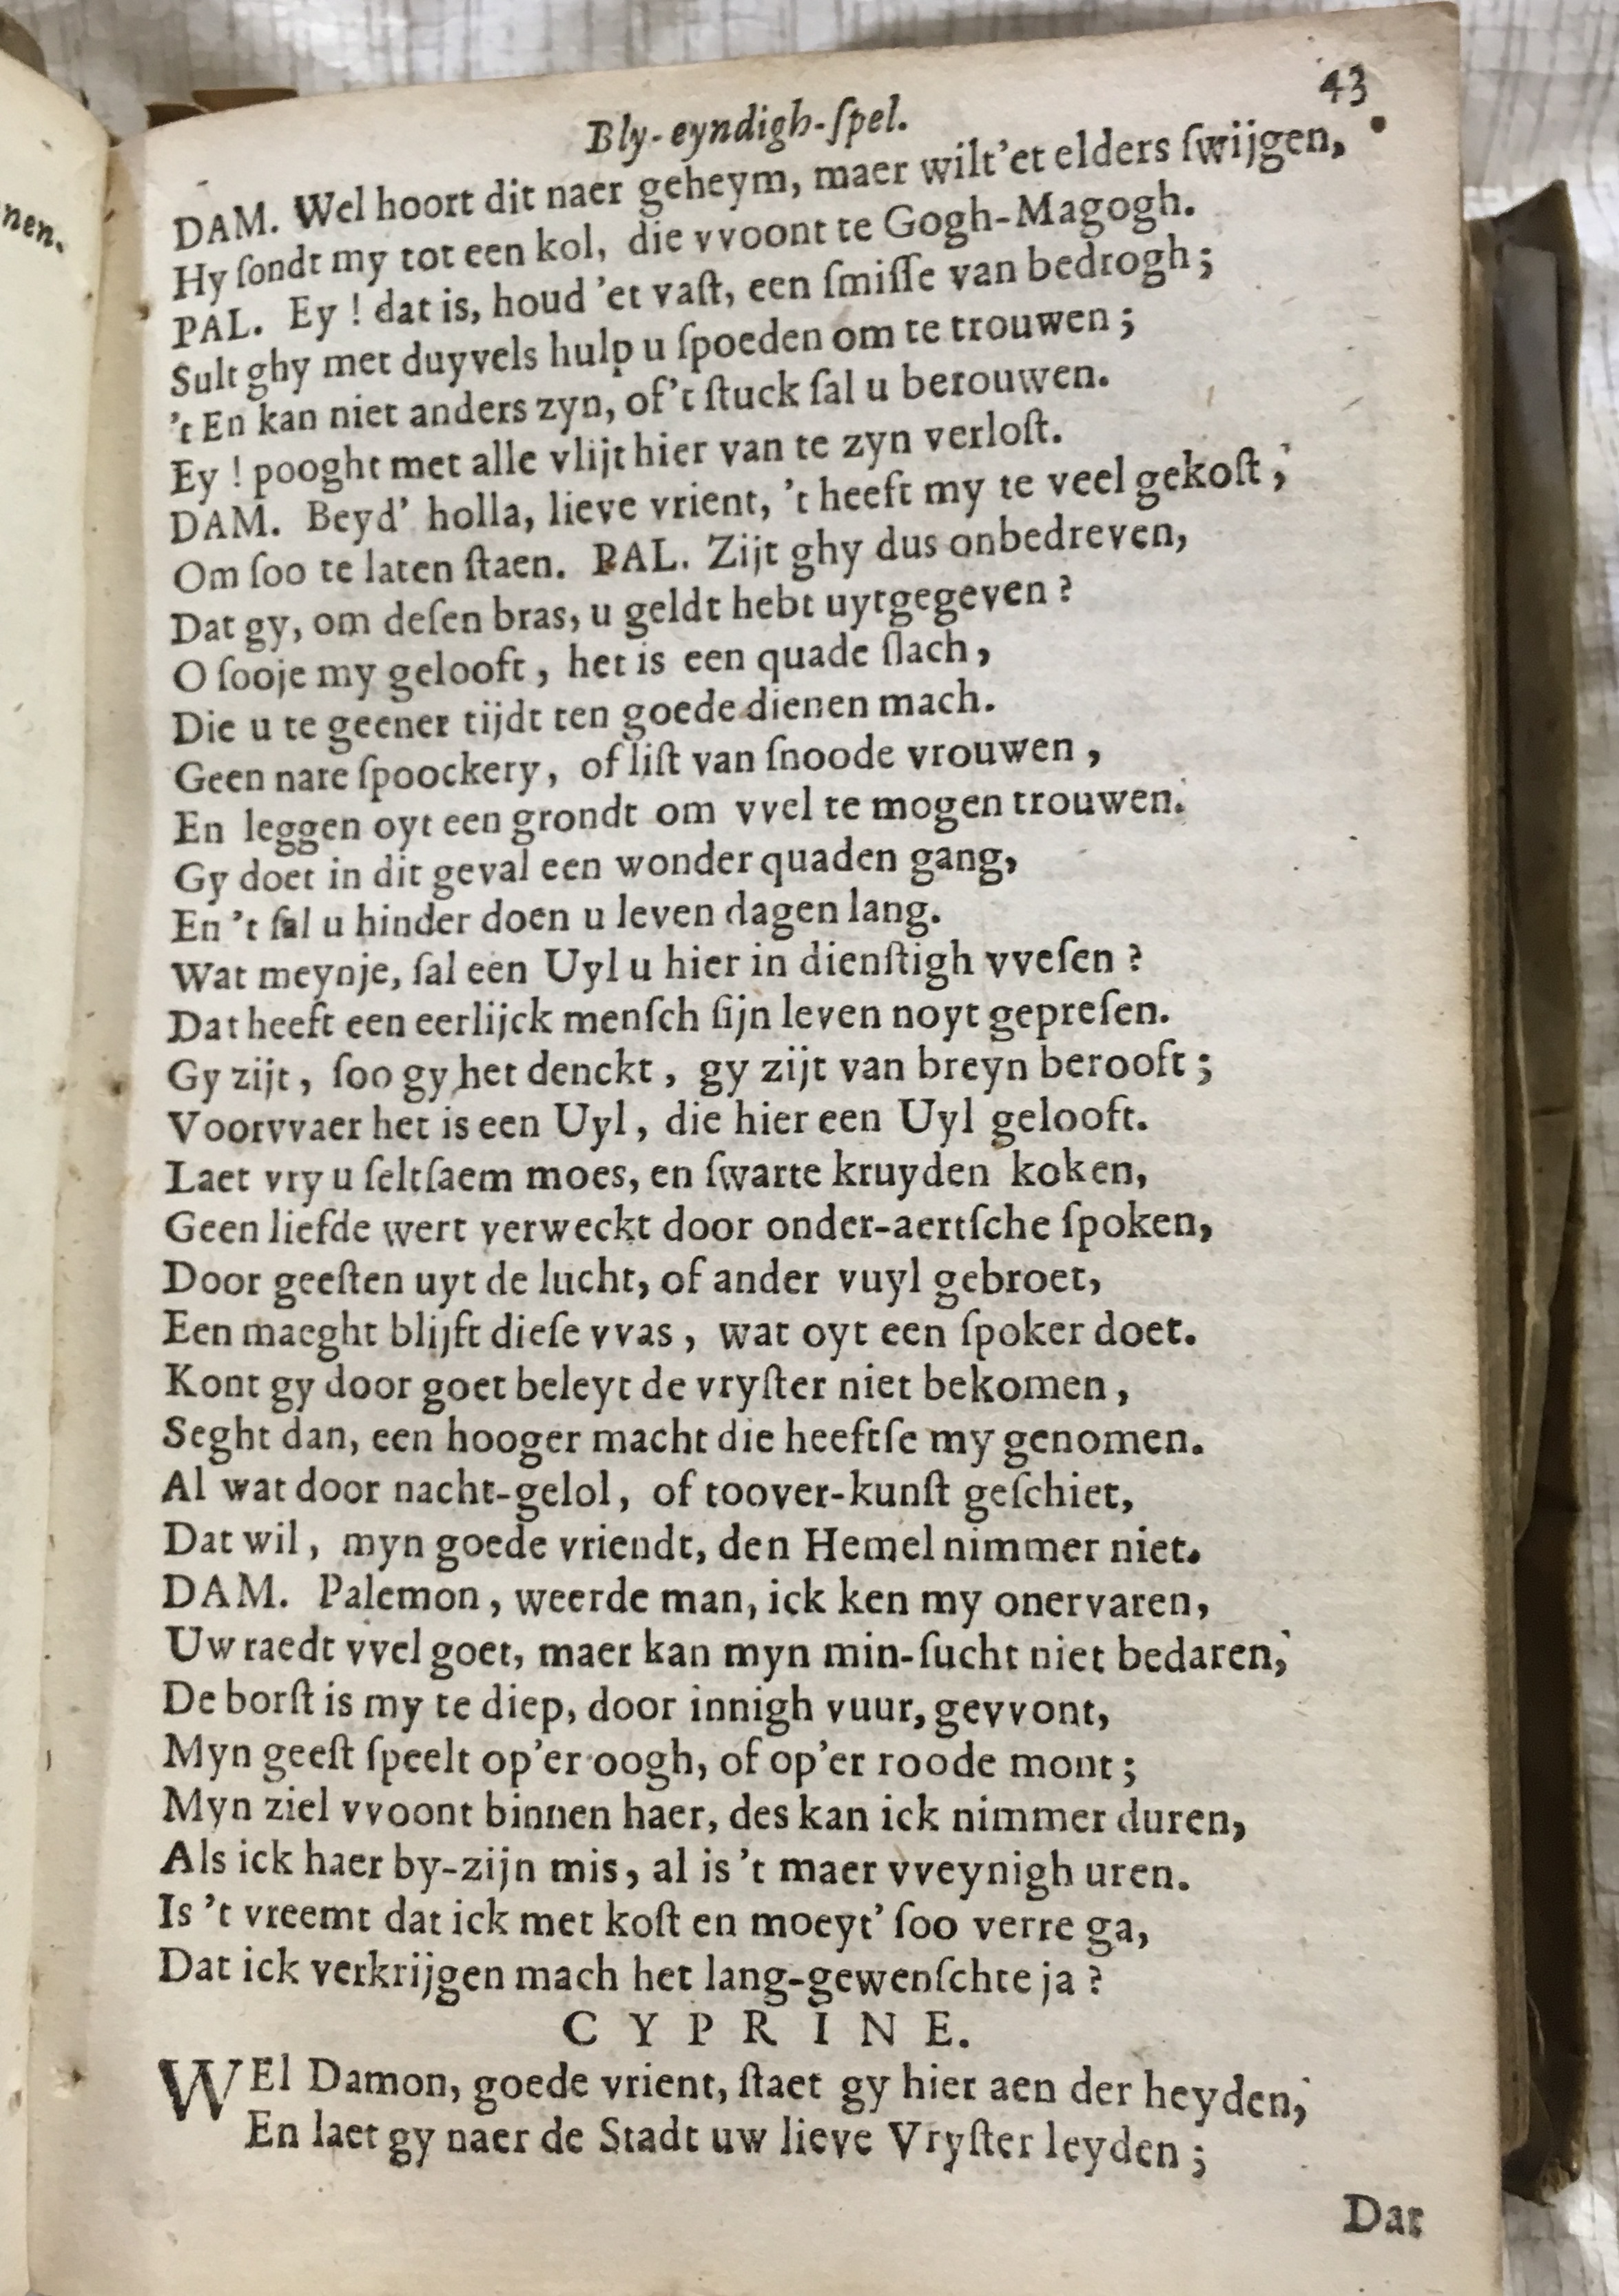 43
Bly-eyndigh-ſpel.
nen.
DAM. Wel hoort dit naer geheym, maer wilt'et elders ſwijgen,
Hy ſondt my tot een kol, die vvoont te Gogh-Magogh.
PAL. Ey ! dat is, houd 'et vaſt, een ſmiſſe van bedrogh;
Sult ghy met duyvels hulp u ſpoeden om te trouwen;
't En kan niet anders zyn, of't ſtuck ſal u berouwen.
Ey ! pooght met alle vlijt hier van te zyn verloſt.
DAM. Beyd' holla, lieve vrient, 't heeft my te veel gekoſt,
Om ſoo te laten ſtaen. PAL. Zijt ghy dus onbedreven,
Dat gy, om deſen bras, u geldt hebt uytgegeven?
O ſooje my gelooft, het is een quade ſlach,
Die u te geener tijdt ten goede dienen mach.
Geen nare ſpoockery, of liſt van ſnoode vrouwen,
En leggen oyt een grondt om vvel te mogen trouwen.
Gy doet in dit geval een wonder quaden gang,
En 't ſal u hinder doen u leven dagen lang.
Wat meynje, ſal een Uyl u hier in dienſtigh vveſen?
Dat heeft een eerlijck menſch ſijn leven noyt gepreſen.
Gy zijt, ſoo gy het denckt, gy zijt van breyn berooft;
Voorvvaer het is een Uyl, die hier een Uyl gelooft.
Laet vry u ſeltſaem moes, en ſwarte kruyden koken,
Geen liefde wert verweckt door onder-aertſche ſpoken,
Door geeſten uyt de lucht, of ander vuyl gebroet,
Een maeght blijft dieſe vvas, wat oyt een ſpoker doet.
Kont gy door goet beleyt de vryſter niet bekomen,
Seght dan, een hooger macht die heeftſe my genomen.
Al wat door nacht-gelol, of toover-kunſt geſchiet,
Dat wil, myn goede vriendt, den Hemel nimmer niet.
DAM. Palemon, weerde man, ick ken my onervaren,
Uw raedt vvel goet, maer kan myn min-ſucht niet bedaren,
De borſt is my te diep, door innigh vuur, gevvont,
Myn geeſt ſpeelt op'er oogh, of op'er roode mont;
Myn ziel vvoont binnen haer, des kan ick nimmer duren,
Als ick haer by-zijn mis, al is 't maer vveynigh uren.
Is 't vreemt dat ick met koſt en moeyt' ſoo verre ga,
Dat ick verkrijgen mach het lang-gewenſchte ja?
CYPRINE.
WEl Damon, goede vrient, ſtaet gy hier aen der heyden,
En laet gy naer de Stadt uw lieve Vryſter leyden;
Dat